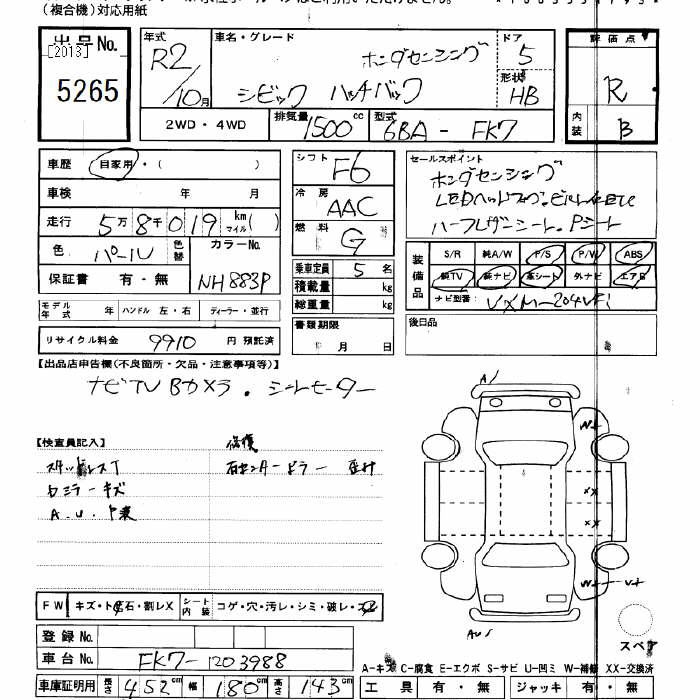 (複合機)対応用紙
出品No. [2013] 5265
年式 R2/10月
車名・グレード ホンダセンシング
シビック ハッチバック
ドア 5
形状 HB
評価点 R
内装 B
2WD・4WD 排気量 1500cc 型式 6BA-FK7
車歴 自家用・( )
車検 年 月
走行 5万8千019 km マイル( )
色 パール 色替 カラーNo. NH883P
保証書 有・無
モデル年式 年 ハンドル 左・右 ディーラー・並行
リサイクル料金 9910 円 預託済
シフト F6
冷房 AAC
燃料 G
乗車定員 5名
積載量 kg
総重量 kg
書類期限 月 日
セールスポイント
ホンダセンシング
ハーフレザーシート.Pシート
装備品 S/R 純A/W P/S P/W ABS
純TV 純ナビ 革シート 外ナビ エアB
ナビ型番: VXM-204VFi
後日品
【出品店申告欄(不良箇所・欠品・注意事項等)】
ナビTV Bカメラ.シートヒーター
【検査員記入】 修復
スタッドレスT 右センターピラー 歪
ミラーキズ
A.U.
FW キズ・ト石・割レX シート内装 コゲ・穴・汚レ・シミ・破レ・ス
登録No.
車台No. FK7-1203988
車庫証明用 長さ 452cm 幅 180cm 高さ 143cm
A
W
XX
XX
W
AU
スペア
A-キズ C-腐食 E-エクボ S-サビ U-凹ミ W-補修 XX-交換済
工具 有・無 ジャッキ 有・無